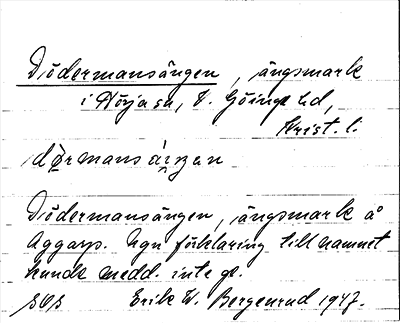 Dödermansängen, ängsmark
i Hörja sn, V. Göinge hd,
Krist. l.
dørmansäŋen
Dödermansängen, ängsmark å
Aggarp. Ngn förklaring till namnet
kunde medd. inte ge.
Erik W. Bergenrud 1947.